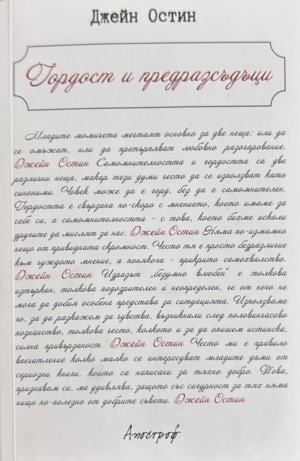 Джейн Остин
Гордост и предразсъдъци
Младите момичета мечтаят основно за две неща: или да
се омъжат, или да претърпяват любовно разочарование.
Джейн Остин Самомнителността и гордостта са две
различни неща, макар тези думи често да се използват като
синоними. Човек може да е горд, без да е самомнителен.
Гордостта е свързана по-скоро с мнението, което имаме за
себе си, а самомнителността - с това, което бихме искали
другите да мислят за нас. Джейн Остин Няма по-измамно
нещо от привидната скромност. Често тя е просто безразличие
към чуждото мнение, а понякога - прикрито самохвалство.
Джейн Остин Изразът „безумно влюбен“ е толкова
изтъркан, толкова подозрителен и неопределен, че от него не
мога да добия особена представа за ситуацията. Използваме
го, за да разкажем за чувства, възникнали след половинчасово
познанство, толкова често, колкото и за да опишем истинска,
силна привързаност. Джейн Остин Често ми е правило
впечатление колко малко се интересуват младите дами от
сериозни книги, които са написани за тяхно добро. Това,
признавам си, ме удивлява, защото със сигурност за тях няма
нищо по-полезно от добрите съвети. Джейн Остин
Апостроф